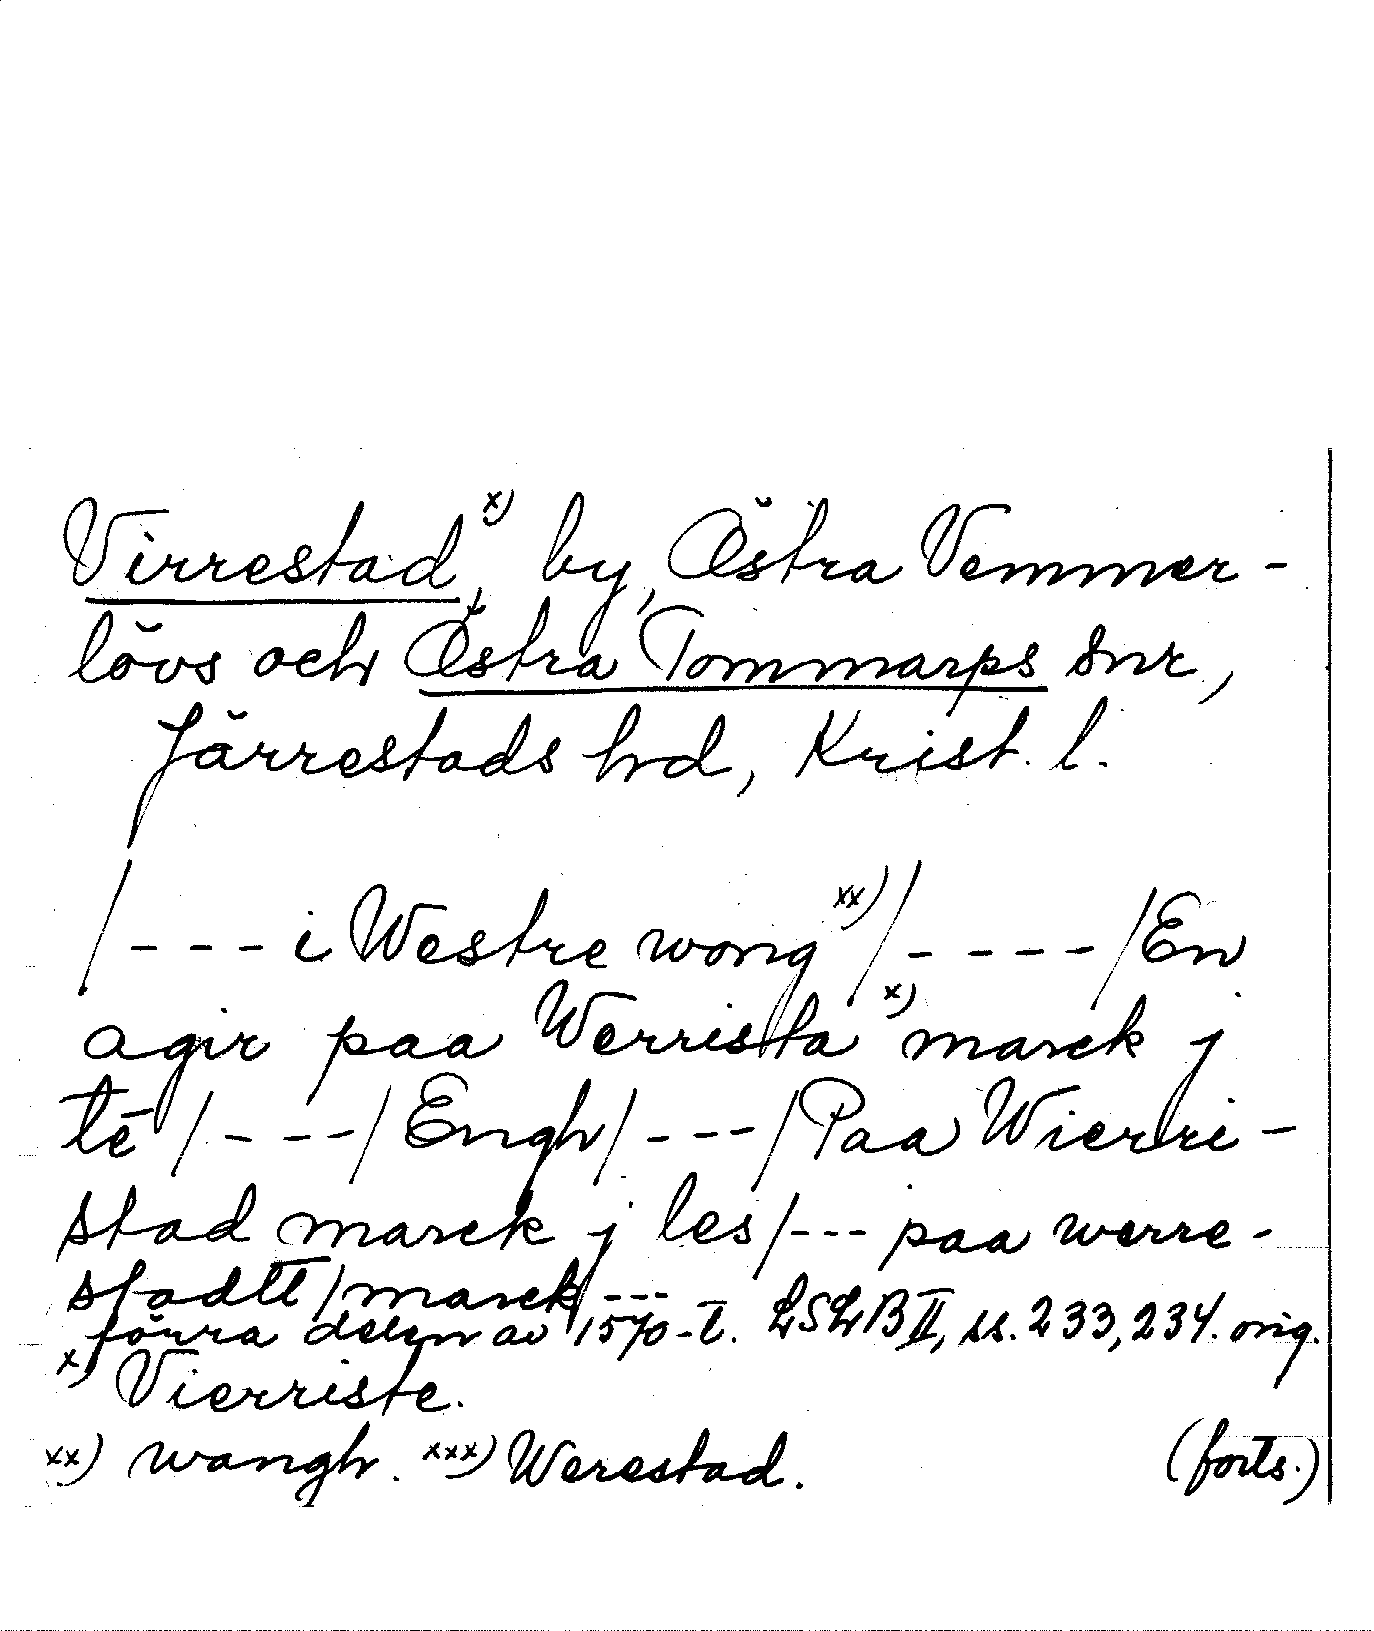 Virrestad x), by, Östra Vemmer-
lövs och Östra Tommarps snr,
Järrestads hd, Krist. l.
/--- i Westre wong xx)/----/En
agir paa Werrista x) marck j
tē/---/Engh/---/Paa Wierri-
stad marck j les/--- paa werre-
stadtt/marck/---
förra delen av 1570-t. LSLB II, ss. 233, 234. orig.
x) Vierriste.
xx) wangh. xxx) Werestad.
(forts.)